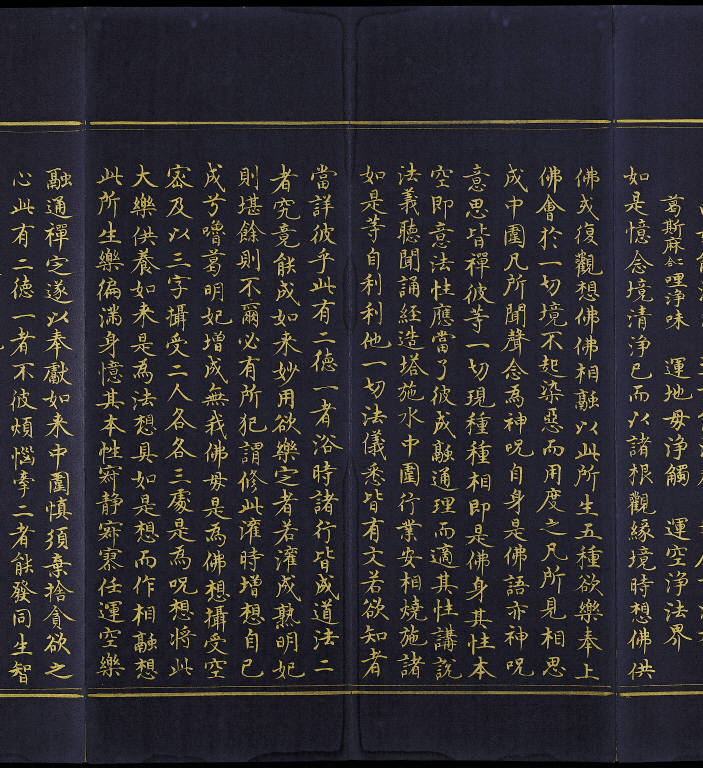 葛斯麻 哩淨味 運地母淨觸 運空淨法界
如是憶念境清淨已而以諸根觀緣境時想佛供
佛或復觀想佛佛相融以此所生五種欲樂奉上
佛會於一切境不起染惡而用度之凡所見相思
成中圍凡所聞聲念為神呪自身是佛語亦神呪
意思皆禪彼等一切現種種相即是佛身其性本
空即意法性應當了彼成融通理而適其性講說
法義聽聞誦經造塔施水中圍行業安相燒施諸
如是等自利利他一切法儀悉皆有文若欲知者
當詳彼乎此有二德一者浴時諸行皆成道法二
者究竟能成如來妙用欲樂定者若灌成熟明妃
則堪餘則不爾必有所犯謂修此灌時增想自己
成兮嚕葛明妃增成無我佛母是為佛想攝受空
密及以三字攝受二人各各三處是為呪想將此
大樂供養如來是為法想具如是想而作相融想
此所生樂徧滿身憶其本性寂靜寂寞任運空樂
融通禪定遂以奉獻如來中圍慎須棄捨貪欲之
心此有二德一者不彼煩惱牽二者能發同生智